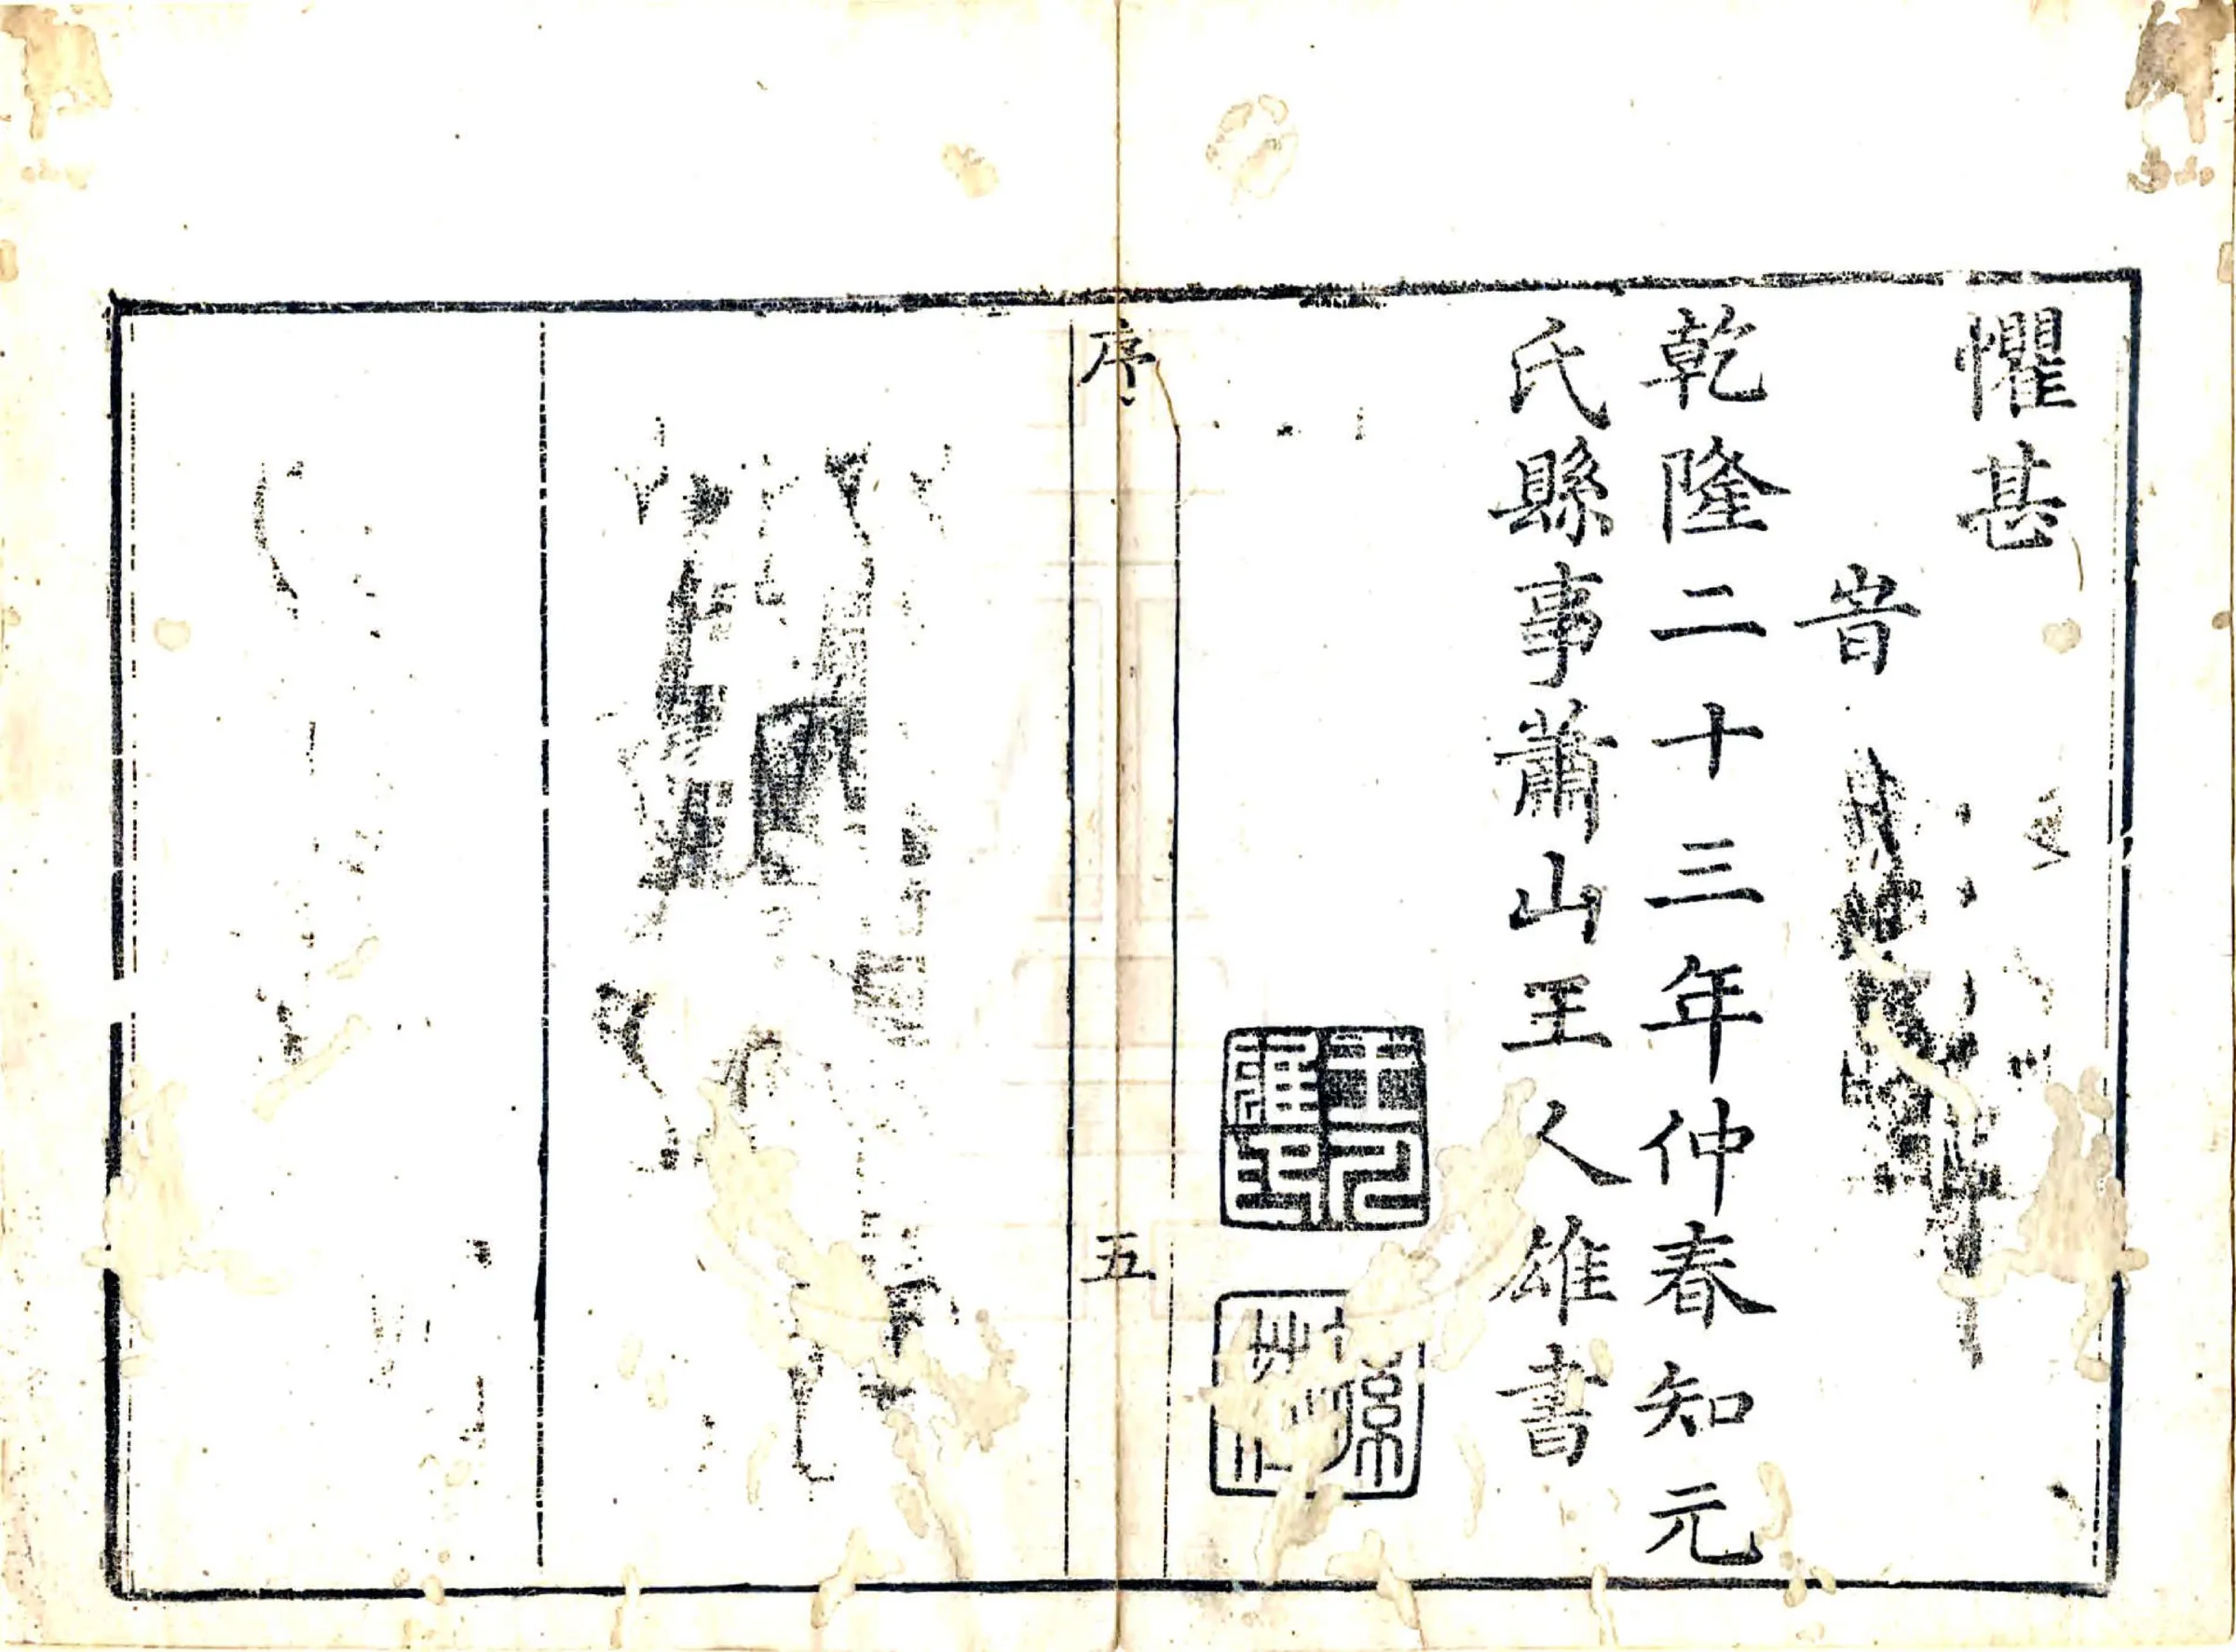 懼甚
旹
乾隆二十三年仲春知元
氏縣事蕭山王人雄書
王人雄印
序
五